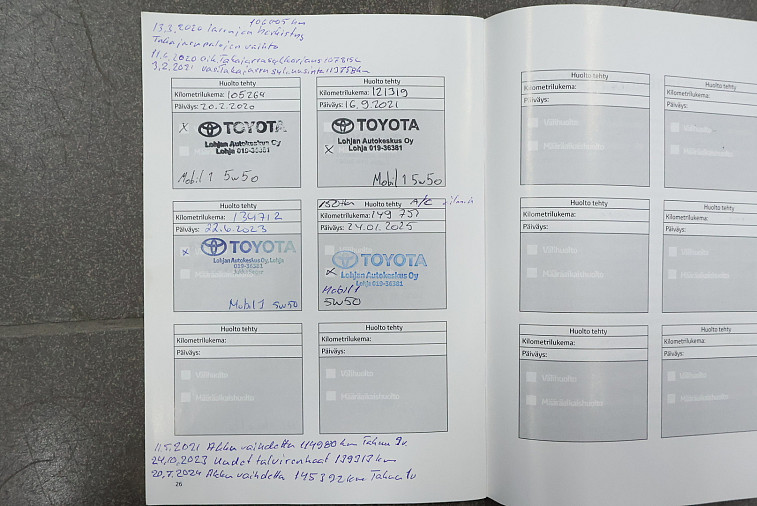 106605 km
13.3.2020 Jarrujen
vaihto
11.6.2020 107815
3.2.2021 113758km
Huolto tehty
Kilometrilukema: 105264
Päiväys: 20.2.2020
x TOYOTA
Lohjan Autokeskus Oy
Lohja 019-36381
Mobil 1 5w50
Huolto tehty
Kilometrilukema: 121319
Päiväys: 16.9.2021
TOYOTA
Lohjan Autokeskus Oy
x Lohja 019-36381
Mobil 1 5w50
Huolto tehty
Kilometrilukema: 134712
Päiväys: 22.6.2023
x TOYOTA
Lohjan Autokeskus Oy, Lohja
019-36381
Mobil 1 5w50
150tkm A/C
Huolto tehty
Kilometrilukema: 149 751
Päiväys: 24.01.2025
TOYOTA
x Lohjan Autokeskus Oy
Lohja 019-36381
Mobil 1
5w50
Huolto tehty
Kilometrilukema:
Päiväys:
Välihuolto
Määräaikaishuolto
Huolto tehty
Kilometrilukema:
Päiväys:
Välihuolto
Määräaikaishuolto
11.5.2021 Akku vaihdettu 114980 km Takuu
24.10.2023 Uudet talvirenkaat 139313 km
20.7.2024 Akku vaihdettu 145392 km Takuu
26
Huolto tehty
Kilometrilukema:
Päiväys:
Välihuolto
Määräaikaishuolto
Huolto tehty
Kilometrilukema:
Päiväys:
Huolto tehty
Kilometrilukema:
Päiväys:
Välihuolto
Määräaikaishuolto
Huolto tehty
Kilometrilukema:
Päiväys:
Huolto tehty
Kilometrilukema:
Päiväys:
Välihuolto
Määräaikaishuolto
Huolto tehty
Kilometrilukema:
Päiväys:
Välihuolto